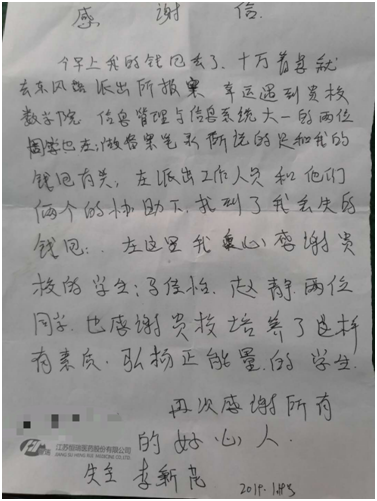 感 谢 信.
今早上我的钱包丢了.十万着急就
去东风路派出所报案 幸运遇到贵校
数学院 信息管理与信息系统大一的两位
同学也在做备案笔录所说的是和我的
钱包有关,在派出工作人员和他们
俩个的协助下,找到了我丢失的
钱包.. 在这里我衷心感谢贵
校的学生:马佳怡.赵静.两位
同学.也感谢贵校培养了这样
有素质.弘扬正能量.的学生.
再次感谢所有
的好心人.
江苏恒瑞医药股份有限公司
JIANGSU HENGRUI MEDICINE COMPANY
失主 李新
2019.